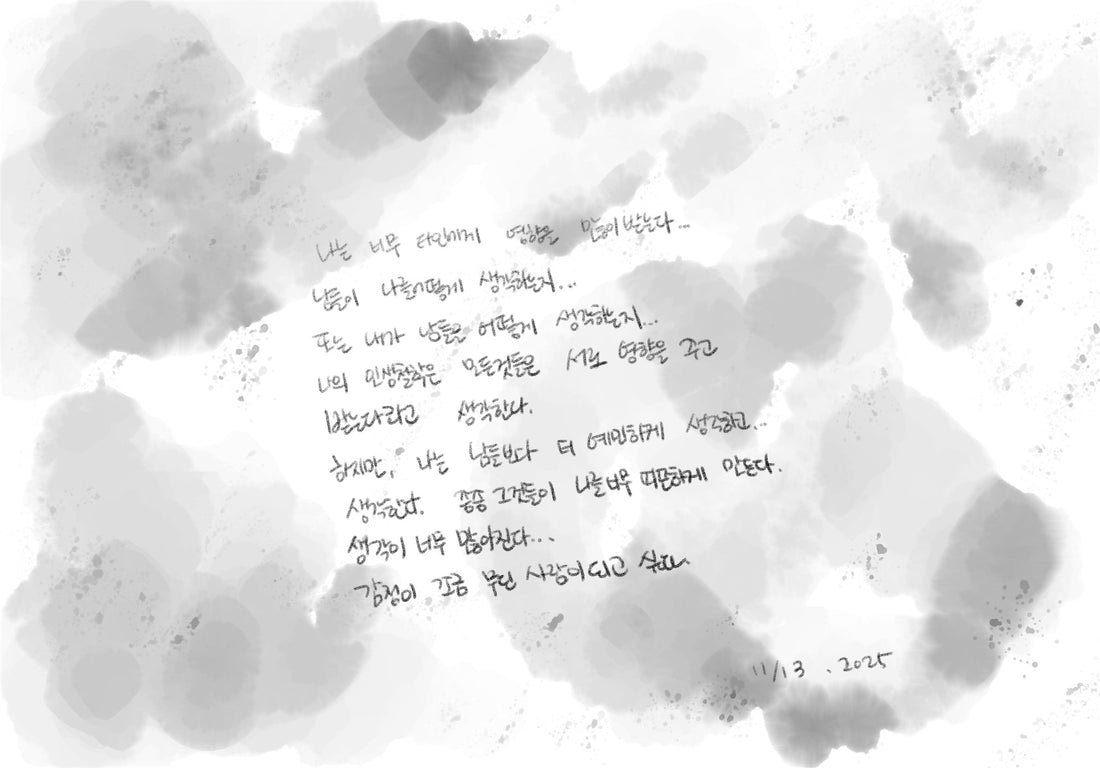 나는 너무 타인에게 영향을 많이 받는다...
남들이 나를 어떻게 생각하는지...
또는 내가 남들을 어떻게 생각하는지...
나의 인생철학은 모든것들은 서로 영향을 주고
받는다라고 생각한다.
하지만, 나는 남들보다 더 예민하게 생각하고...
생각한다. 종종 그것들이 나를 너무 피곤하게 만든다.
생각이 너무 많아진다...
감정이 조금 무딘 사람이 되고 싶다.
11/13 . 2025